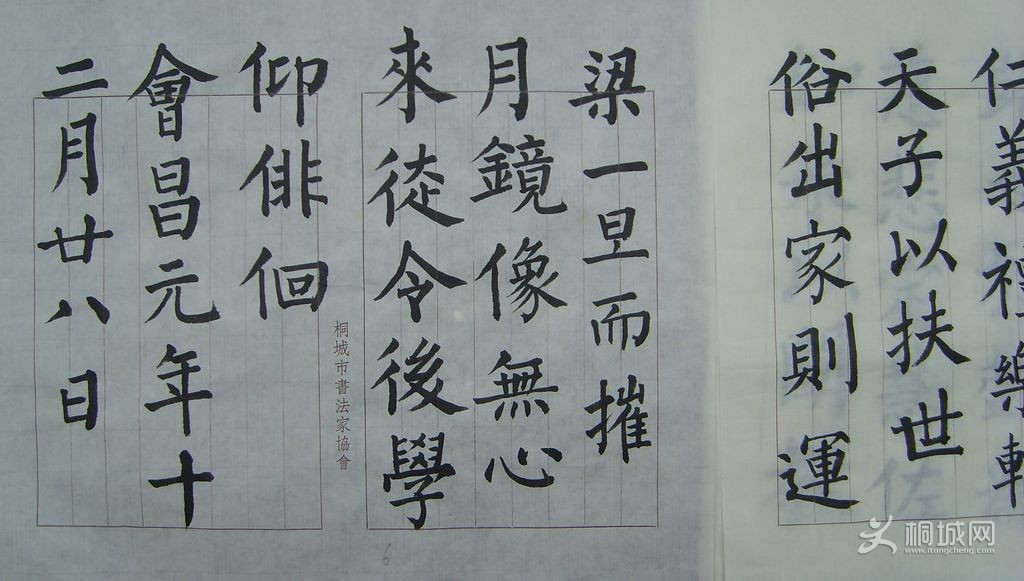 仁義禮樂
天子以扶世
俗出家則運
梁一旦而摧
月鏡像無心
來徒令後學
桐城市書法家協會
仰俳佪
會昌元年十
二月廿八日
6
桐城网
www.itongcheng.com